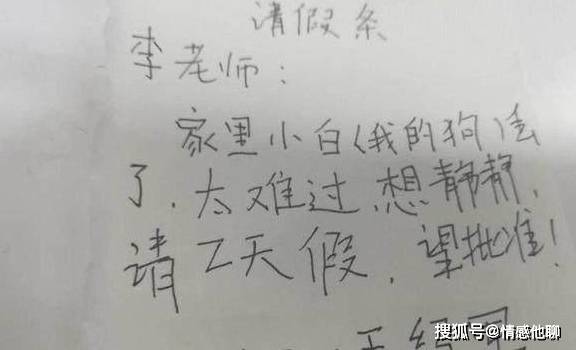 请假条
李老师：
家里小白（我的狗）丢
了，太难过，想静静，
请2天假，望批准！
搜狐号@情感他聊